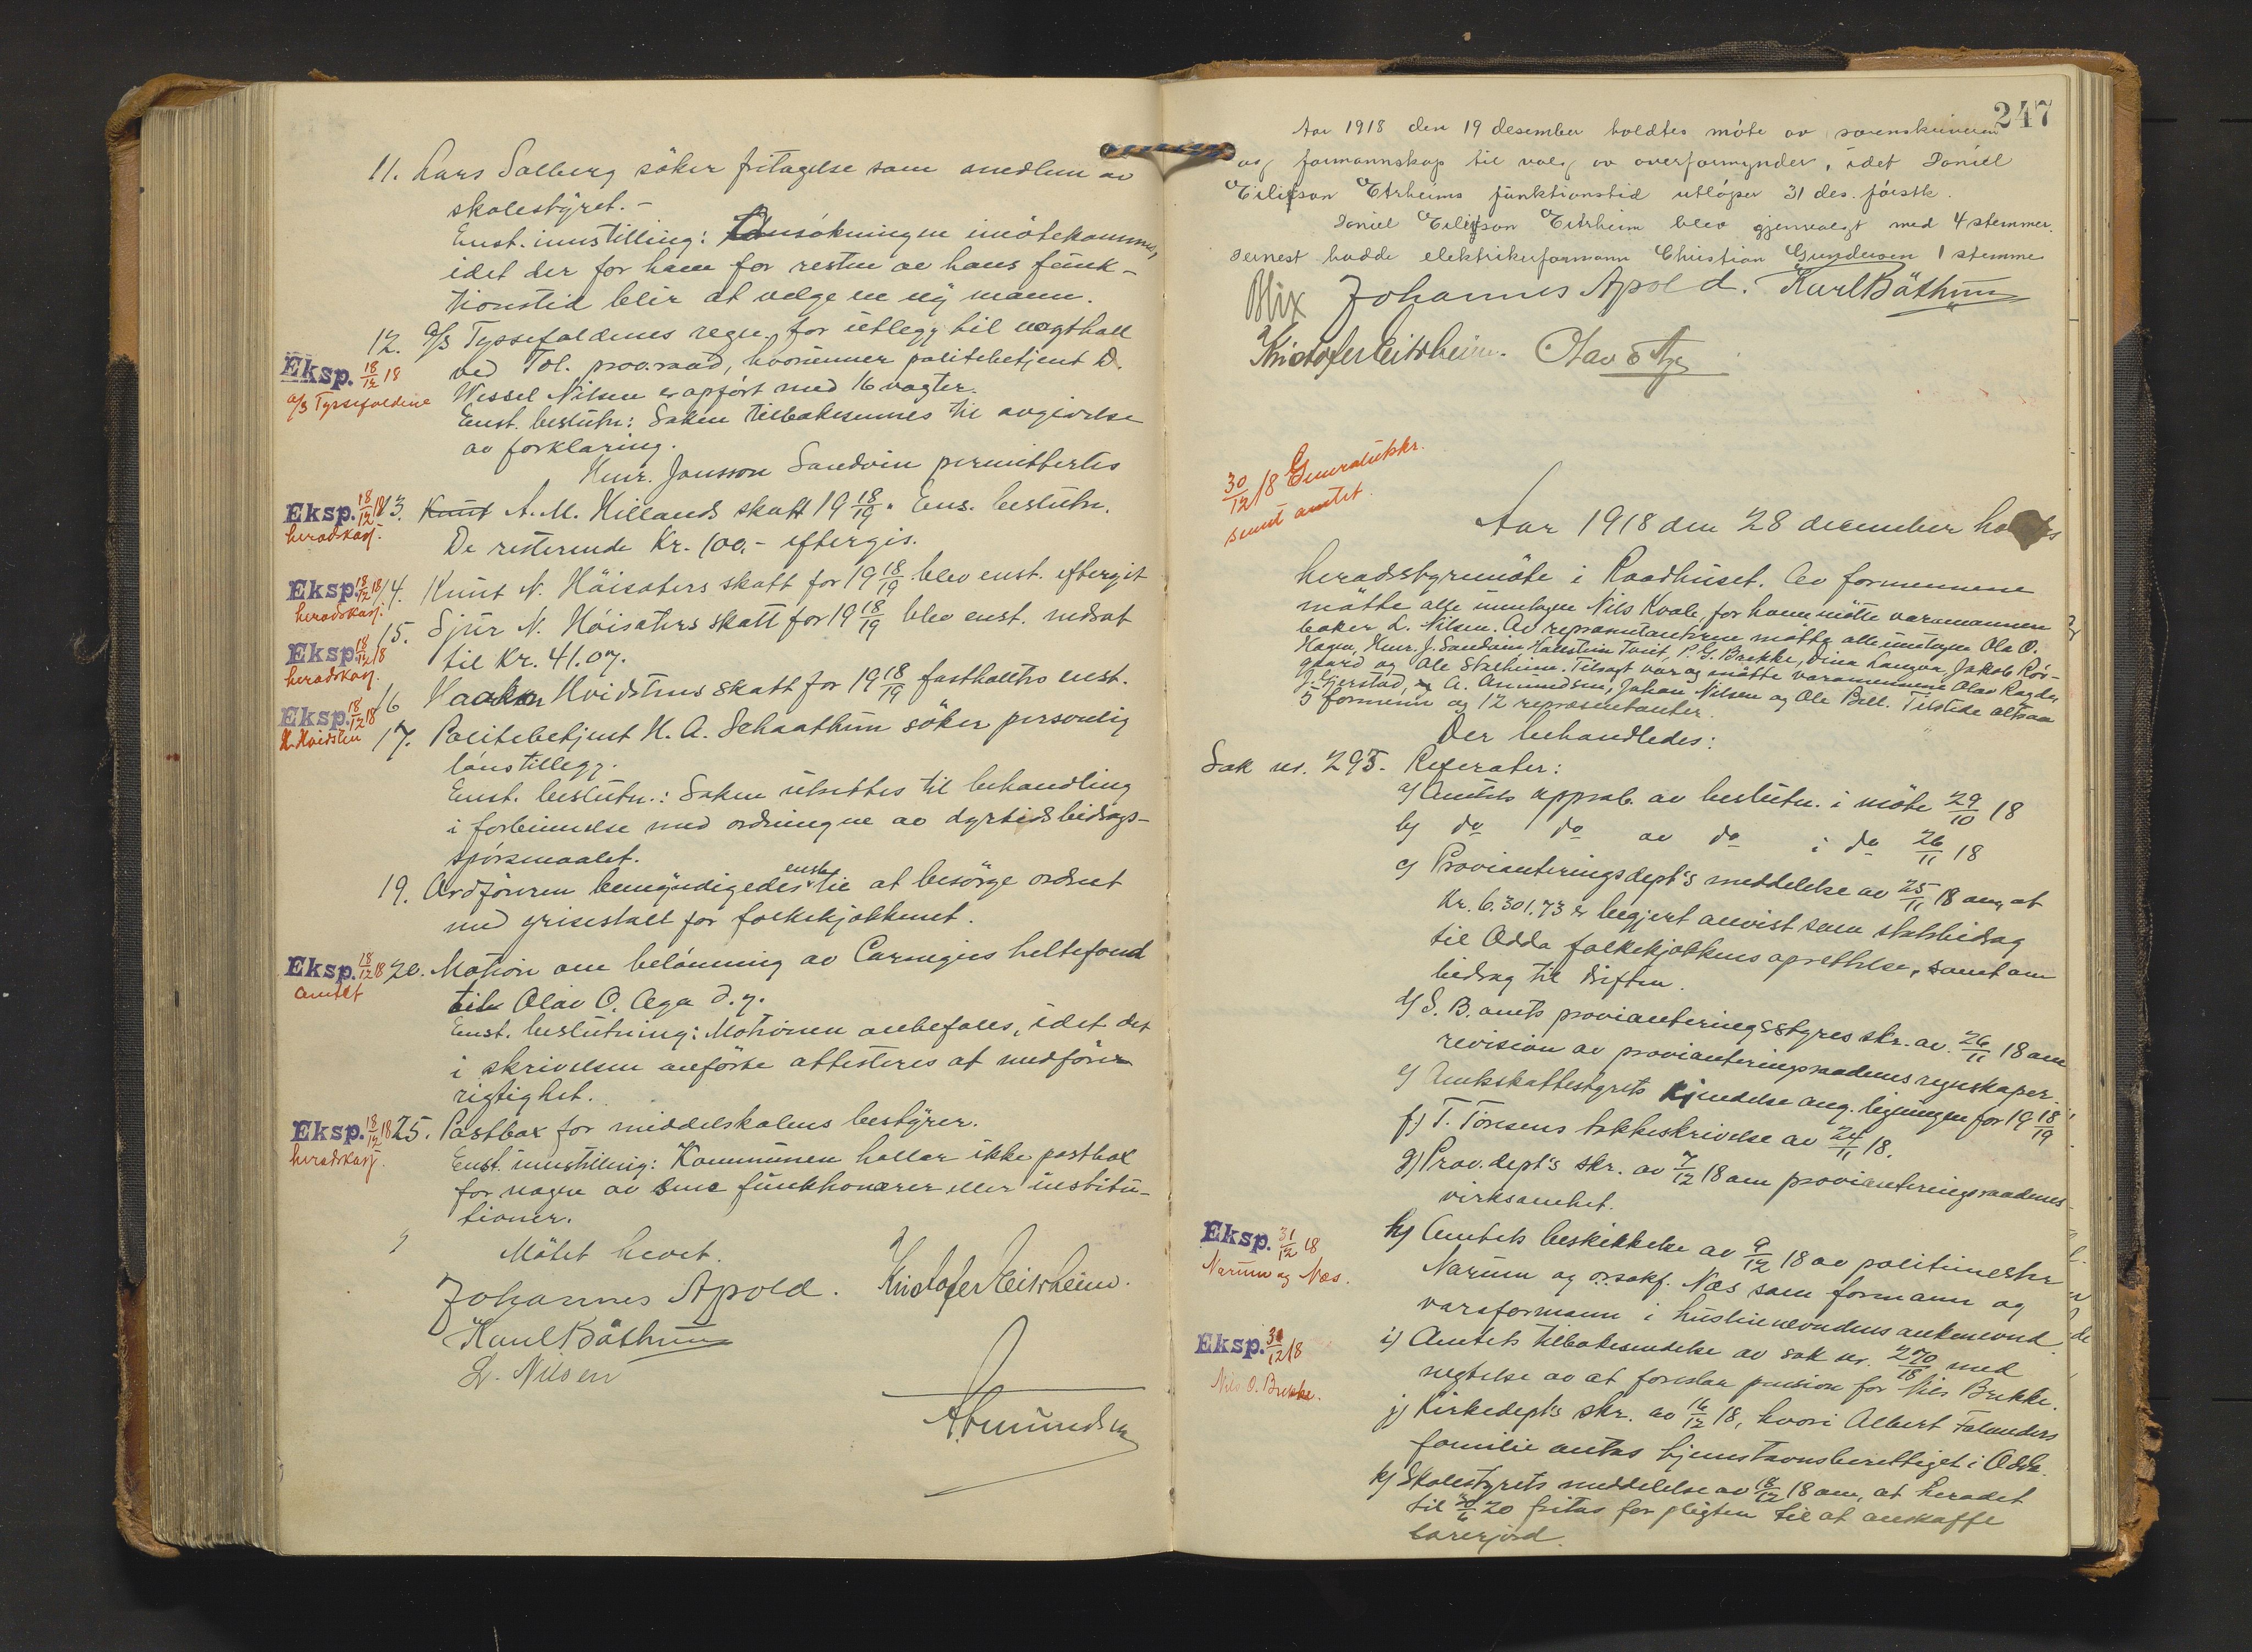 11. Lars Solberg søker fritagelse som medlem av
skolestyret. -
Enst. innstilling: Ansøkningen imøtekommes,
idet der for ham for resten av hans funk-
tionstid blir at velge en ny mann.
12. A/S Tyssefaldenes regn. for utlegg til vagthold
Eksp. 18/12 18
a/s Tyssefaldene
ved Tol. prov.raad, hvorunner politibetjent D.
Wessel Nilsen er opført med 16 vagter.
Enst. beslutn: Saken tilbakesennes til avgivelse
av forklaring.
Henr. Jansson Sandvin permittertes
Eksp. 18/12 18
heradskass.
13. Knut A. M. Hillands skatt 19 18/19. Ens. beslutn.
De resterende Kr. 100,- eftergis.
Eksp. 18/12 18
heradskass.
14. Knut N. Höisæters skatt for 19 18/19 blev enst. eftergit
Eksp. 18/12 18
heradskass.
15. Sjur N. Höisæters skatt for 19 18/19 blev enst. nedsat
til Kr. 41.07.
Eksp. 18/12 18
H. Hvidsten
16 Haakon Hvidstens skatt for 19 18/19 fastholdtes enst.
17. Politibetjent H. A. Schaathun söker personlig
lönstillegg.
Enst. beslutn.: Saken utsettes til behandling
i forbinnelse med ordningen av dyrtidsbidrags-
spörsmaalet.
19. Ordføreren bemyndigedes enst. til at besörge ordnet
med grisestall for folkekjökkenet.
Eksp. 18/12 18
amtet
20. Motion om belönning av Carnegies heltefond
til Olav O. Aga d. y.
Enst. beslutning: Motionen anbefales, idet det
i skrivelsen anförte attesteres at medföre
rigtighet.
Eksp. 18/12 18
heradskass.
25. Postbox for middelskolens bestyrer.
Enst. innstilling: Kommunen holder ikke postbox
for nogen av sine funktionærer eller institu-
tioner.
Mötet hevet.
Johannes Apold. Kristofer Eitrheim.
Karl Båthun
L. Nilsen
A. Amundsen
247
Aar 1918 den 19 desember holdtes møte av sorenskriveren
og formannskap til valg av overformynder, idet Daniel
Eilifson Eitrheims funktionstid utløper 31 des. førstk.
Daniel Eilifson Eitrheim blev gjenvalgt med 4 stemmer.
Dernest hadde elektrikerformann Christian Gundersen 1 stemme
Blix Johannes Apold. Karl Båthun
Kristofer Eitrheim. Olav Aga
30/12 18 Generalutskr.
sendt amtet.
Aar 1918 den 28 december holdtes
heradsstyremöte i Raadhuset. Av formennene
mötte alle unntagen Nils Kvale, for hann mötte varamannen
baker L. Nilsen. Av repræsentantene mötte alle unntagen Ola O.
Hagen, Henr. J. Sandvin, Halstein Tveit, P. G. Bakke, Dina Langva, Jakob Rör-
gaard og Ole Stalheim. Tilsagt var og mötte varamennene Olav Ragde,
J. Gjerstad, A. Amundsen, Johan Nilsen og Ole Bell. Tilstede altsaa
5 formenn og 12 repræsentanter.
Der behandledes:
Sak nr. 295. Referater:
a) Amtets approb. av beslutn. i möte 29/10 18
b) do do av do i do 26/11 18
c) Provianteringsdept's meddelelse av 25/11 18 ang. at
Kr. 6.301.73 er begjert anvist som statsbidrag
til Odda folkekjökkens oprettelse, samt om
bidrag til driften.
d) S. B. amts provianteringsstyres skr. av 26/11 18 om
revision av provianteringsraadenes regnskaper.
e) Amtsskattestyrets kjendelse ang. ligningen for 19 18/19
f) T. Tönsens takkeskrivelse av 24/11 18.
g) Prov.dept's skr. av 7/12 18 om provianteringsraadenes
virksomhet.
Eksp. 31/12 18
Narum og Næs.
h) Amtets beskikkelse av 9/12 18 av politimester
Narum og o.r.sakf. Næs som formann og
varaformann i husleienevndens ankenevnd.
Eksp. 30/12 18
Nils O. Brekke.
i) Amtets tilbakesendelse av sak nr. 270/18 med
negtelse av at foreslaa pension for Nils Brekke.
j) Kirkedept's skr. av 16/12 18, hvori Albert Folanders
familie antas hjemstavnsberettiget i Odda.
k) Skolestyrets meddelelse av 18/12 18 om, at heradet
til 30/6 20 fritas for pligten til at anskaffe
lærerjord.